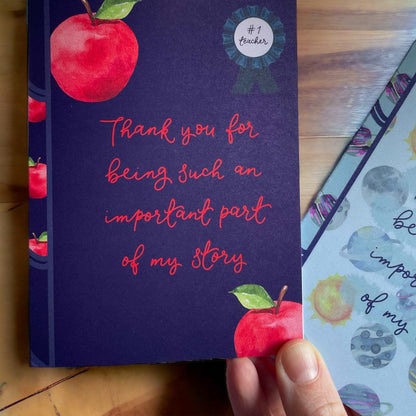 #1
teacher
Thank you for
being such an
important part
of my story
be
impo
of m